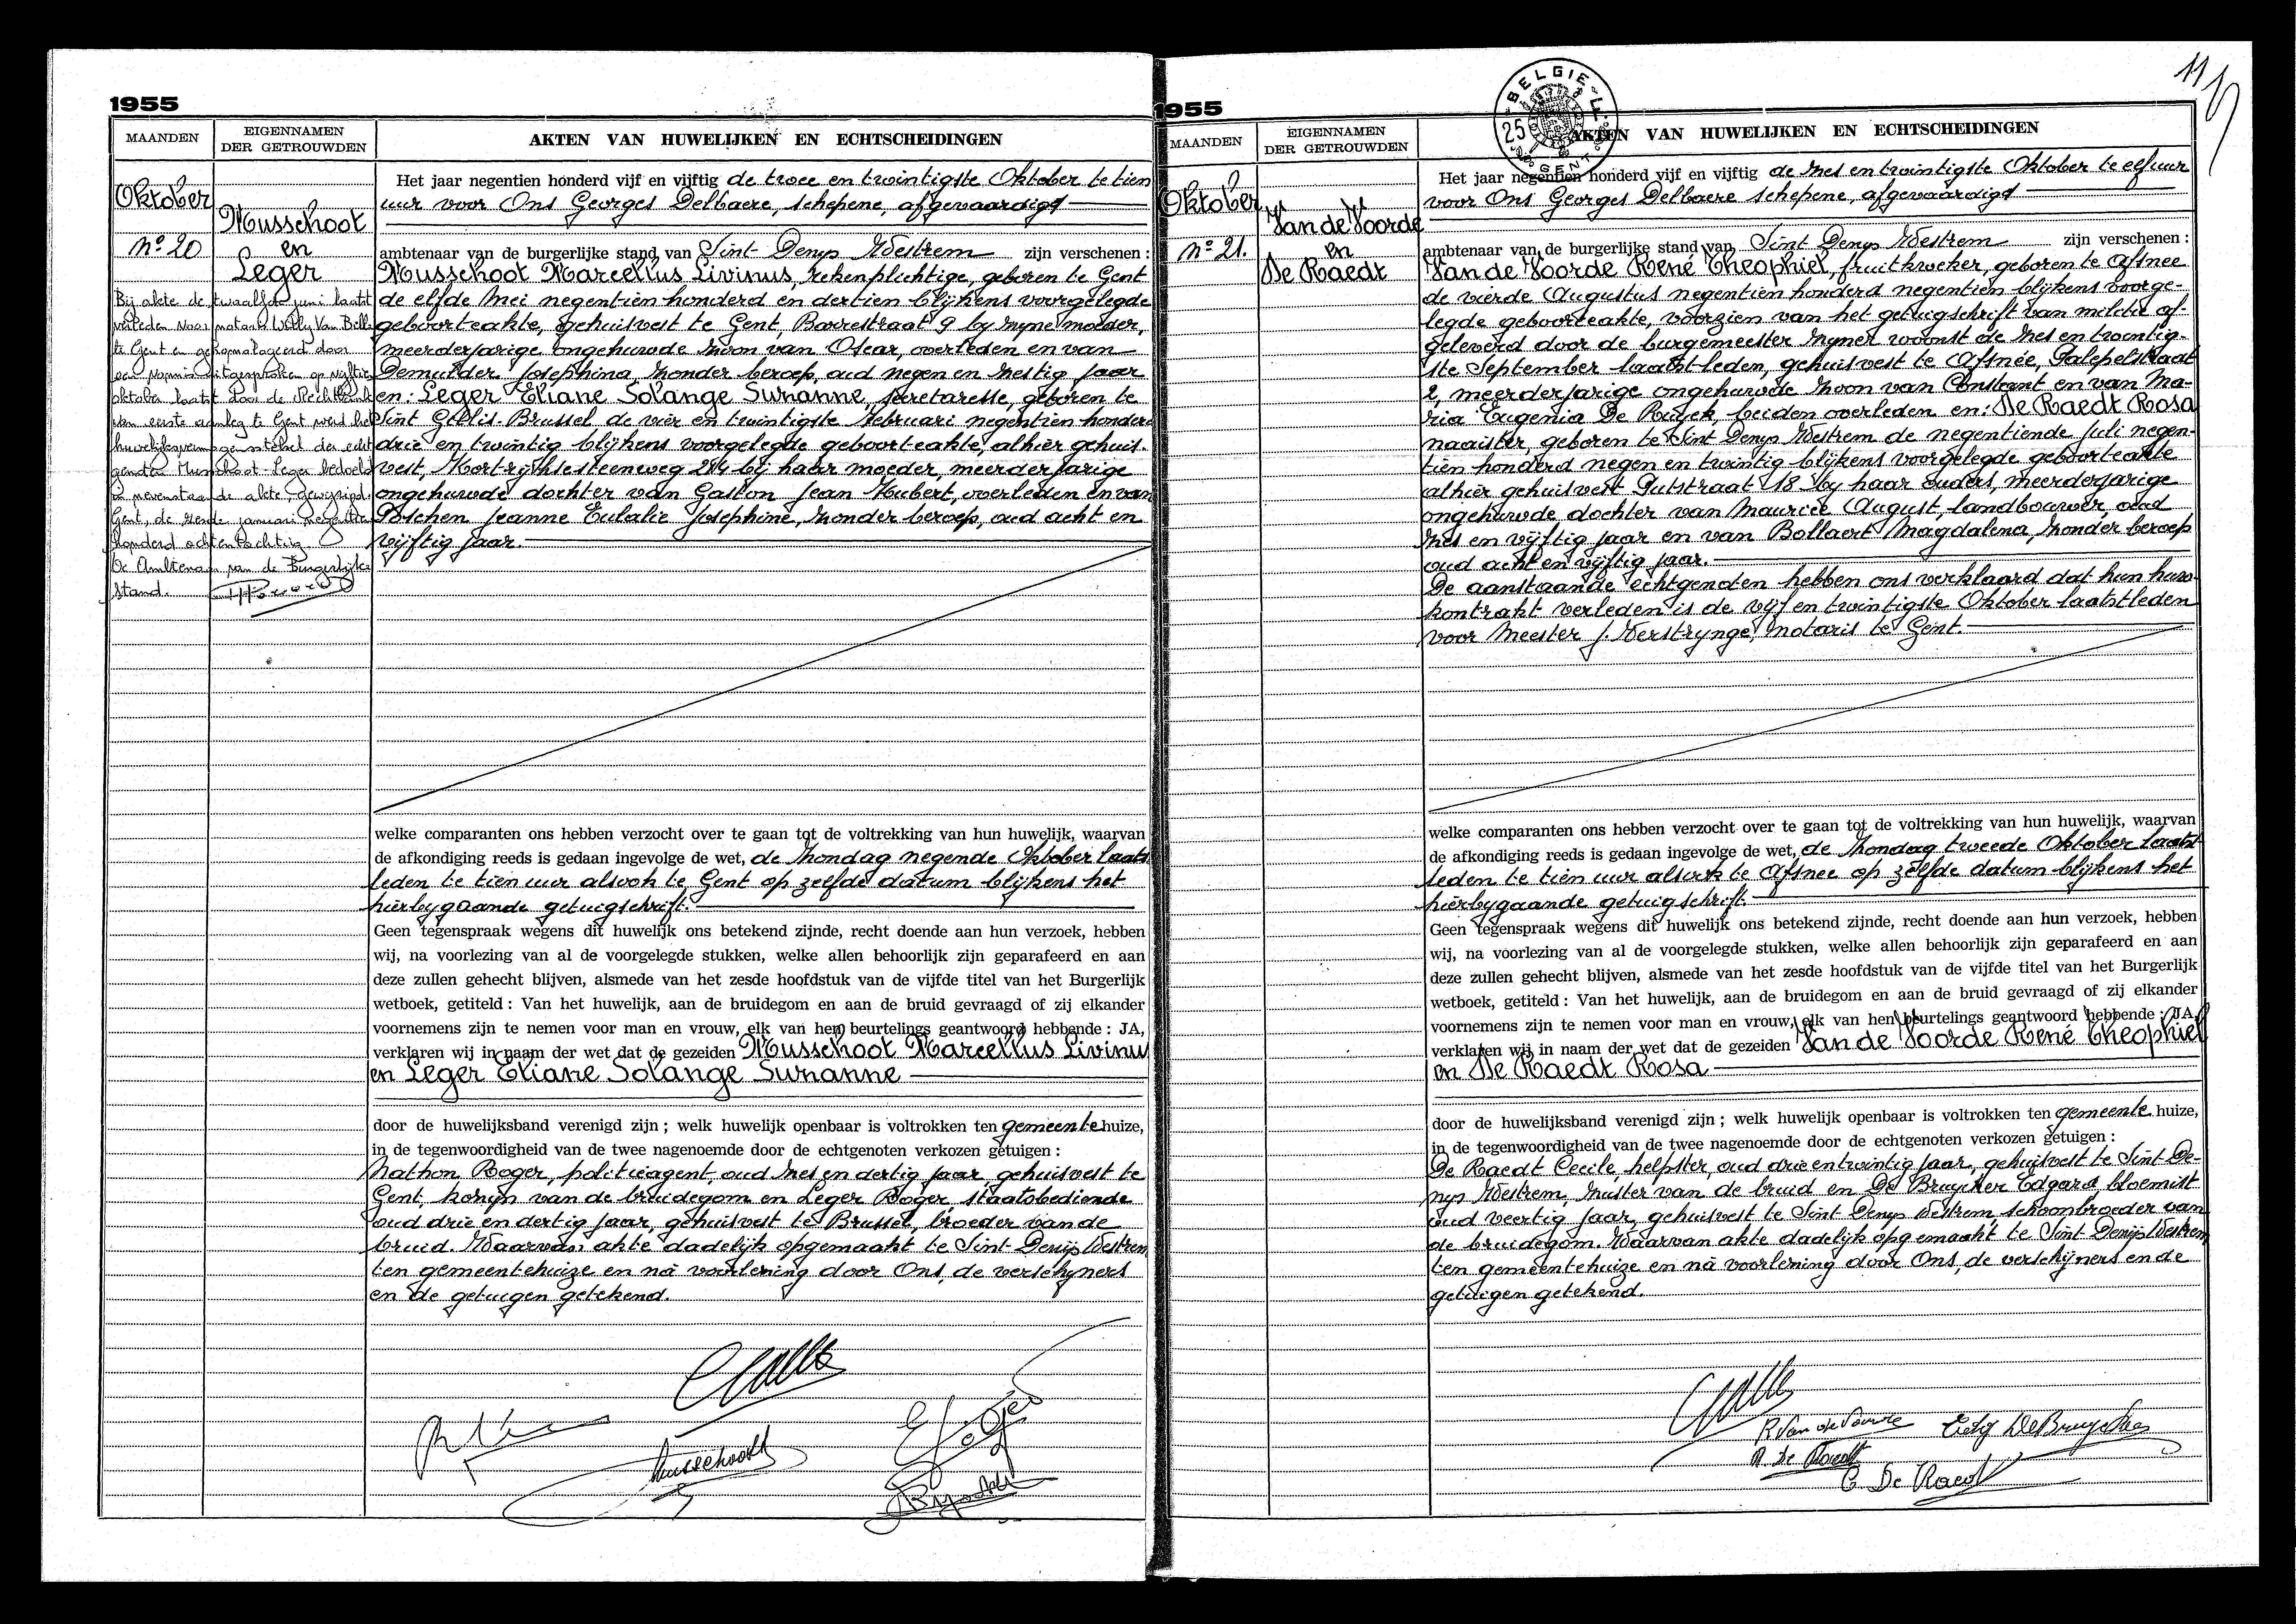 1955
MAANDEN
EIGENNAMEN
DER GETROUWDEN
AKTEN VAN HUWELIJKEN EN ECHTSCHEIDINGEN
Oktober
Musschoot
Nº 20
en
Leger
Bij akte de twaalfde juni laatst
verleden voor notaris Willy Van Belle
te Gent en gehomologeerd door
oktober laatst door de Rechtbank
van eerste aanleg te Gent werd het
huwelijksvermogenstelsel der echt
genoten Musschoot Leger bedoeld
in nevenstaande akte, gewijzigd.
Gent, de januari negentien
honderd achtentachtig
De Ambtenaar van de Burgerlijke
Stand.
Het jaar negentien honderd vijf en vijftig de twee en twintigste Oktober te tien
uur voor Ons Georges Delbaere, schepene, afgevaardigd
ambtenaar van de burgerlijke stand van Sint Denys Westrem zijn verschenen :
Musschoot Marcellus Livinus, rekenplichtige, geboren te Gent
de elfde Mei negentien honderd en dertien blijkens voorgelegde
geboorteakte, gehuisvest te Gent, 9 by zyne moeder,
meerderjarige ongehuwde zoon van Oscar, overleden en van
Demulder Josephina, zonder beroep, oud negen en zestig jaar
en: Leger Eliane Solange Suzanne, secretaresse, geboren te
Sint Gillis-Brussel de vier en twintigste Februari negentien honderd
drie en twintig blijkens voorgelegde geboorteakte, alhier gehuis-
vest, Kortrijksesteenweg 284 bij haar moeder, meerderjarige
ongehuwde dochter van Gaston Jean Hubert, overleden en van
Poschen Jeanne Eulalie Josephine, zonder beroep, oud acht en
vijftig jaar.
welke comparanten ons hebben verzocht over te gaan tot de voltrekking van hun huwelijk, waarvan
de afkondiging reeds is gedaan ingevolge de wet, de zondag negende Oktober laatst
leden te tien uur alsook te Gent op zelfde datum blijkens het
hierbygaande getuigschrift.
Geen tegenspraak wegens dit huwelijk ons betekend zijnde, recht doende aan hun verzoek, hebben
wij, na voorlezing van al de voorgelegde stukken, welke allen behoorlijk zijn geparafeerd en aan
deze zullen gehecht blijven, alsmede van het zesde hoofdstuk van de vijfde titel van het Burgerlijk
wetboek, getiteld : Van het huwelijk, aan de bruidegom en aan de bruid gevraagd of zij elkander
voornemens zijn te nemen voor man en vrouw, elk van hen beurtelings geantwoord hebbende : JA,
verklaren wij in naam der wet dat de gezeiden Musschoot Marcellus Livinu
en Leger Eliane Solange Suzanne
door de huwelijksband verenigd zijn ; welk huwelijk openbaar is voltrokken ten gemeente huize,
in de tegenwoordigheid van de twee nagenoemde door de echtgenoten verkozen getuigen :
Mathon Roger, politieagent, oud zes en dertig jaar gehuisvest te
Gent, kozijn van de bruidegom en Leger Roger, staatsbediende
oud drie en dertig jaar, gehuisvest te Brussel, broeder van de
bruid. Waarvan akte dadelijk opgemaakt te Sint Denijs Westrem
ten gemeentehuize en nà voorlezing door Ons, de verschijners
en de getuigen getekend.
Musschoot
1955
BELGIE
25
GENT
MAANDEN
EIGENNAMEN
DER GETROUWDEN
AKTEN VAN HUWELIJKEN EN ECHTSCHEIDINGEN
Oktober
Van de Voorde
Nº 21.
en
De Raedt
Het jaar negentien honderd vijf en vijftig de zes en twintigste Oktober te elf uur
voor Ons Georges Delbaere schepene, afgevaardigd
ambtenaar van de burgerlijke stand van Sint Denys Westrem zijn verschenen :
Van de Voorde René Theophiel, fruitkweker, geboren te Afsnee
de vierde Augustus negentien honderd negentien blijkens voorge-
legde geboorteakte, voorzien van het getuigschrift van militie af-
geleverd door de burgemeester zyner woonst de zes en twintig-
ste September laatst leden, gehuisvest te Afsnée, Galepelstraat
2, meerderjarige ongehuwde zoon van Constant en van Ma-
ria Eugenia De Ruyck, beiden overleden en: De Raedt Rosa
naaister, geboren te Sint Denys Westrem de negentiende Juli negen-
tien honderd negen en twintig blijkens voorgelegde geboorteakte
alhier gehuisvest Putstraat 18 by haar ouders, meerderjarige
ongehuwde dochter van Maurice August, landbouwer, oud
zes en vijftig jaar en van Bollaert Magdalena, zonder beroep
oud acht en vijftig jaar.
De aanstaande echtgenoten hebben ons verklaard dat hun huw-
kontrakt verleden is de vijf en twintigste Oktober laatstleden
voor Meester J. Verstrynge, notaris te Gent.
welke comparanten ons hebben verzocht over te gaan tot de voltrekking van hun huwelijk, waarvan
de afkondiging reeds is gedaan ingevolge de wet, de zondag tweede Oktober laatst
leden te tien uur alsook te Afsnee op zelfde datum blijkens het
hierbygaande getuigschrift.
Geen tegenspraak wegens dit huwelijk ons betekend zijnde, recht doende aan hun verzoek, hebben
wij, na voorlezing van al de voorgelegde stukken, welke allen behoorlijk zijn geparafeerd en aan
deze zullen gehecht blijven, alsmede van het zesde hoofdstuk van de vijfde titel van het Burgerlijk
wetboek, getiteld : Van het huwelijk, aan de bruidegom en aan de bruid gevraagd of zij elkander
voornemens zijn te nemen voor man en vrouw, elk van hen beurtelings geantwoord hebbende : JA,
verklaren wij in naam der wet dat de gezeiden Van de Voorde René Theophiel
en De Raedt Rosa
door de huwelijksband verenigd zijn ; welk huwelijk openbaar is voltrokken ten gemeente huize,
in de tegenwoordigheid van de twee nagenoemde door de echtgenoten verkozen getuigen :
De Raedt Cecile, helpster, oud drie en twintig jaar, gehuisvest te Sint De-
nys Westrem, zuster van de bruid en De Bruycker Edgard, bloemist
oud veertig jaar, gehuisvest te Sint Denys Westrem schoonbroeder van
de bruidegom. Waarvan akte dadelijk opgemaakt te Sint Denijs Westrem
ten gemeentehuize en nà voorlezing door Ons, de verschijners en de
getuigen getekend.
R Van de Voorde
R. De Raedt
C. De Raedt